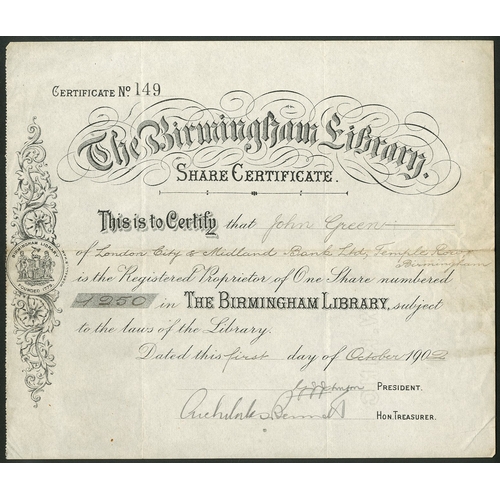 CERTIFICATE Nº 149
The Birmingham Library.
SHARE CERTIFICATE.
This is to Certify that John Green
of London City & Midland Bank Ltd, Temple Row
Birmingham
is the Registered Proprietor of One Share numbered
1250 in THE BIRMINGHAM LIBRARY, subject
to the laws of the Library.
Dated this first day of October 1902
PRESIDENT.
HON. TREASURER.
BIRMINGHAM LIBRARY
FOUNDED 1779